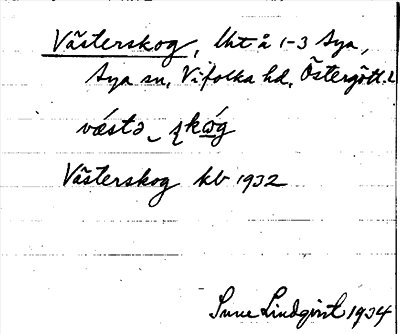 Västerskog, lht å 1-3 Sya,
Sya sn, Vifolka hd, Östergötl. l
vǽstə ʂkώg
Västerskog kb 1932
Sune Lindqvist 1934